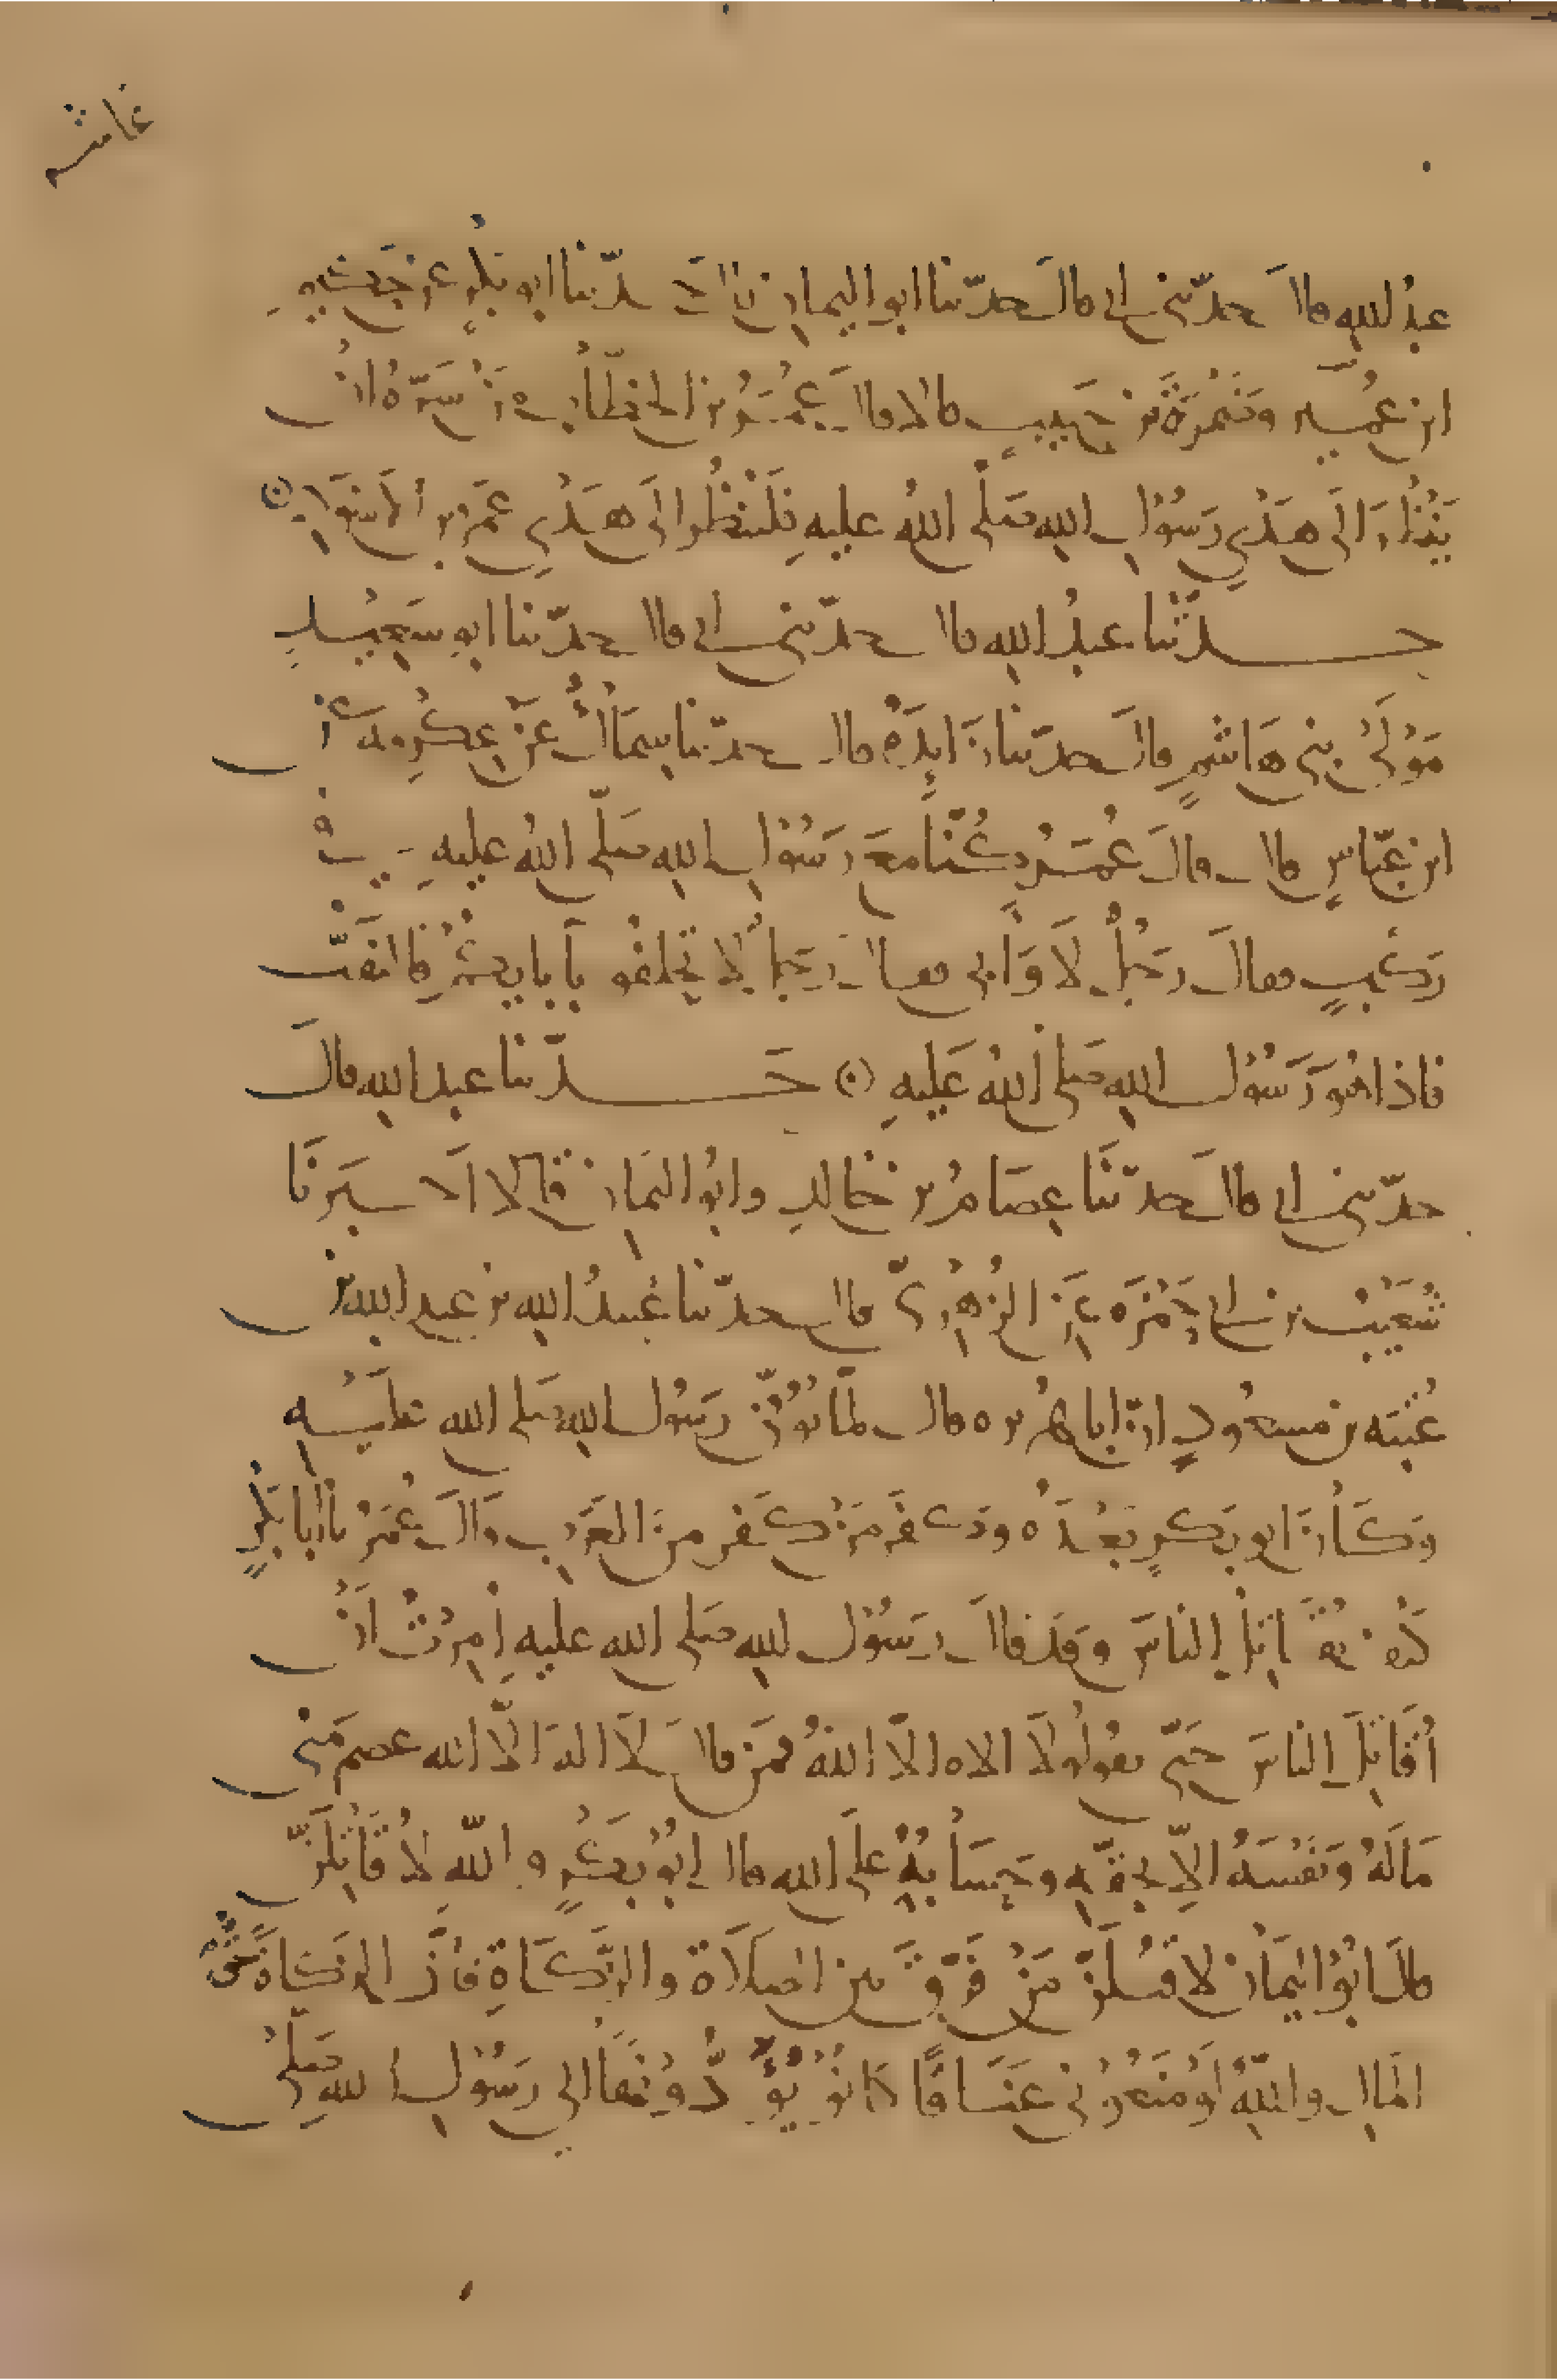 عاشر
عبدُ الله قالَ حدّثني ابي قالَ حدّثنا ابو اليمان قالَ حدّثنا ابو بكرٍ عن حَكيمِ
ابن عُمَيرٍ وضَمُرَةَ بن حَبيبٍ قالا قالَ عُمَرُ بن الخطّابِ مَنْ سَرّهُ انْ
يَنْظُرَ الَى هَدْيِ رَسُوْلِ الله صَلّى اللهُ عليهِ فَلْيَنْظُر الَى هَدْيِ عَمْرِو بن الاَسْوَدِ
حدّثنا عبدُ الله قال حدّثني ابي قال حدّثنا ابو سَعِيْدٍ
مَوْلَىْ بني هَاشمٍ قالَ حدّثنا زَايِدَةُ قال حدّثنا سِمَاكُ عَنْ عِكْرِمَه عن
ابن عبّاسٍ قال قالَ عُمَرُ كُنّا معَ رَسُوْلِ الله صَلّى اللهُ عليهِ في
رَكْبٍ فقالَ رَجُلٌ لَا وَأبي فقال رَجلٌ لا تحلفُو بآبايكمْ فَالتَفَتّ
فاذا هُوَ رَسُوْل الله صَلى اللهُ عَليهِ حَدّثنا عبد الله قالَ
حدّثني ابي قالَ حدثنَا عِصَامُ بن خَالدٍ وابُو اليمَان قَالا اَخْبَرنَا
شُعَيْبُ بن ابي حَمْزَه عَن الزُهْرِيّ قال حدّثنا عُبيدُ الله بن عبد الله بن
عُتبَه بن مسعُودٍ انّ ابا هُريره قال لمّا تُوُفّيَ رَسُول الله صَلى الله عليْهِ
وَكَانَ ابو بَكرٍ بَعْدَهُ وكَفَرَ مَنْ كَفر مِنَ العَرَبِ قَالَ عُمَرُ يا أبا بَكْرٍ
كَيْفَ نُقَاتِلُ الناسَ وقَد قالَ رَسُوْل الله صَلى الله عليهِ أمِرْتُ اَنْ
أُقَاتِلَ الناسَ حَتّى يقُولُو لَا الاه الّا اللهُ فمَن قالَ لَا الهَ الّا الله عصم مَنّي
مَالَهُ وَنَفْسَهُ الّا بحَقّهِ وحِسَابُهُ علَى الله قال ابُوْ بَكْرٍ واللّهِ لَاُقَاتِلَنّ
قالَ ابُوْ اليمَان لاقتُلَنّ مَنْ فَرّقَ بين الصلَاة والزّكَاةِ فَانّ الزكَاةَ حَقُّ
المالِ واللّهِ لَوْ مَنَعُوْني عَنَاقًا كانُوْ يُؤَدُّوْنَهَا الى رَسُوْلِ الله صَلّى